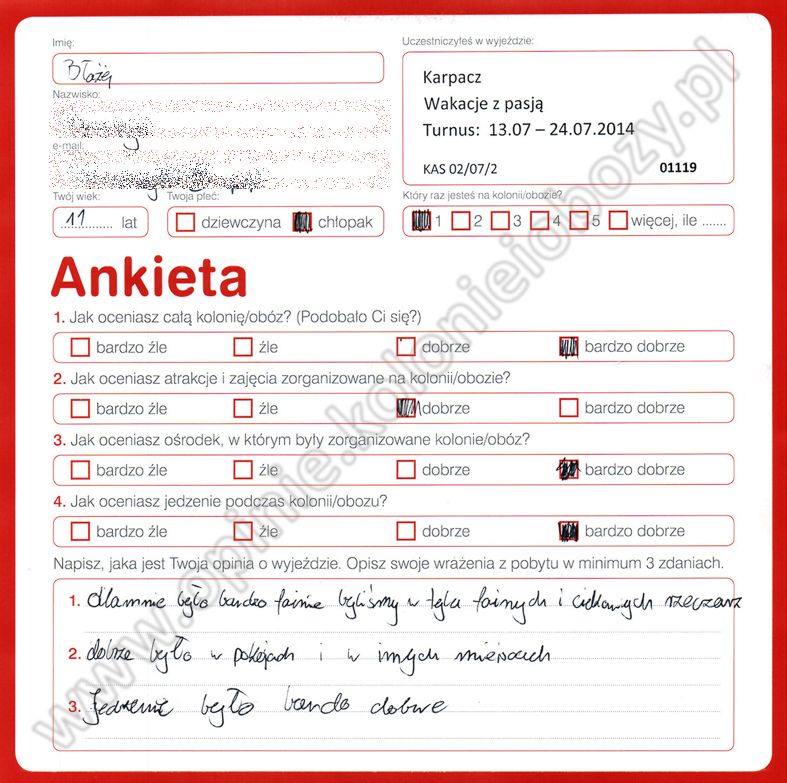 Imię:
Błażej
Nazwisko:
e-mail:
Twój wiek:
11 lat
Twoja płeć:
dziewczyna chłopak
Uczestniczyłeś w wyjeździe:
Karpacz
Wakacje z pasją
Turnus: 13.07 – 24.07.2014
KAS 02/07/2 01119
Który raz jesteś na kolonii/obozie?
1 2 3 4 5 więcej, ile .......
Ankieta
1. Jak oceniasz całą kolonię/obóz? (Podobało Ci się?)
bardzo źle źle dobrze bardzo dobrze
2. Jak oceniasz atrakcje i zajęcia zorganizowane na kolonii/obozie?
bardzo źle źle dobrze bardzo dobrze
3. Jak oceniasz ośrodek, w którym były zorganizowane kolonie/obóz?
bardzo źle źle dobrze bardzo dobrze
4. Jak oceniasz jedzenie podczas kolonii/obozu?
bardzo źle źle dobrze bardzo dobrze
Napisz, jaka jest Twoja opinia o wyjeździe. Opisz swoje wrażenia z pobytu w minimum 3 zdaniach.
1. dlamnie było bardzo fajnie byliśmy w tylu fajnych i ciekawych
2. dobrze było w pokojach i w innych miejscach
3. Jedzenie było bardo dobre
www.opinie.kolonieiobozy.pl